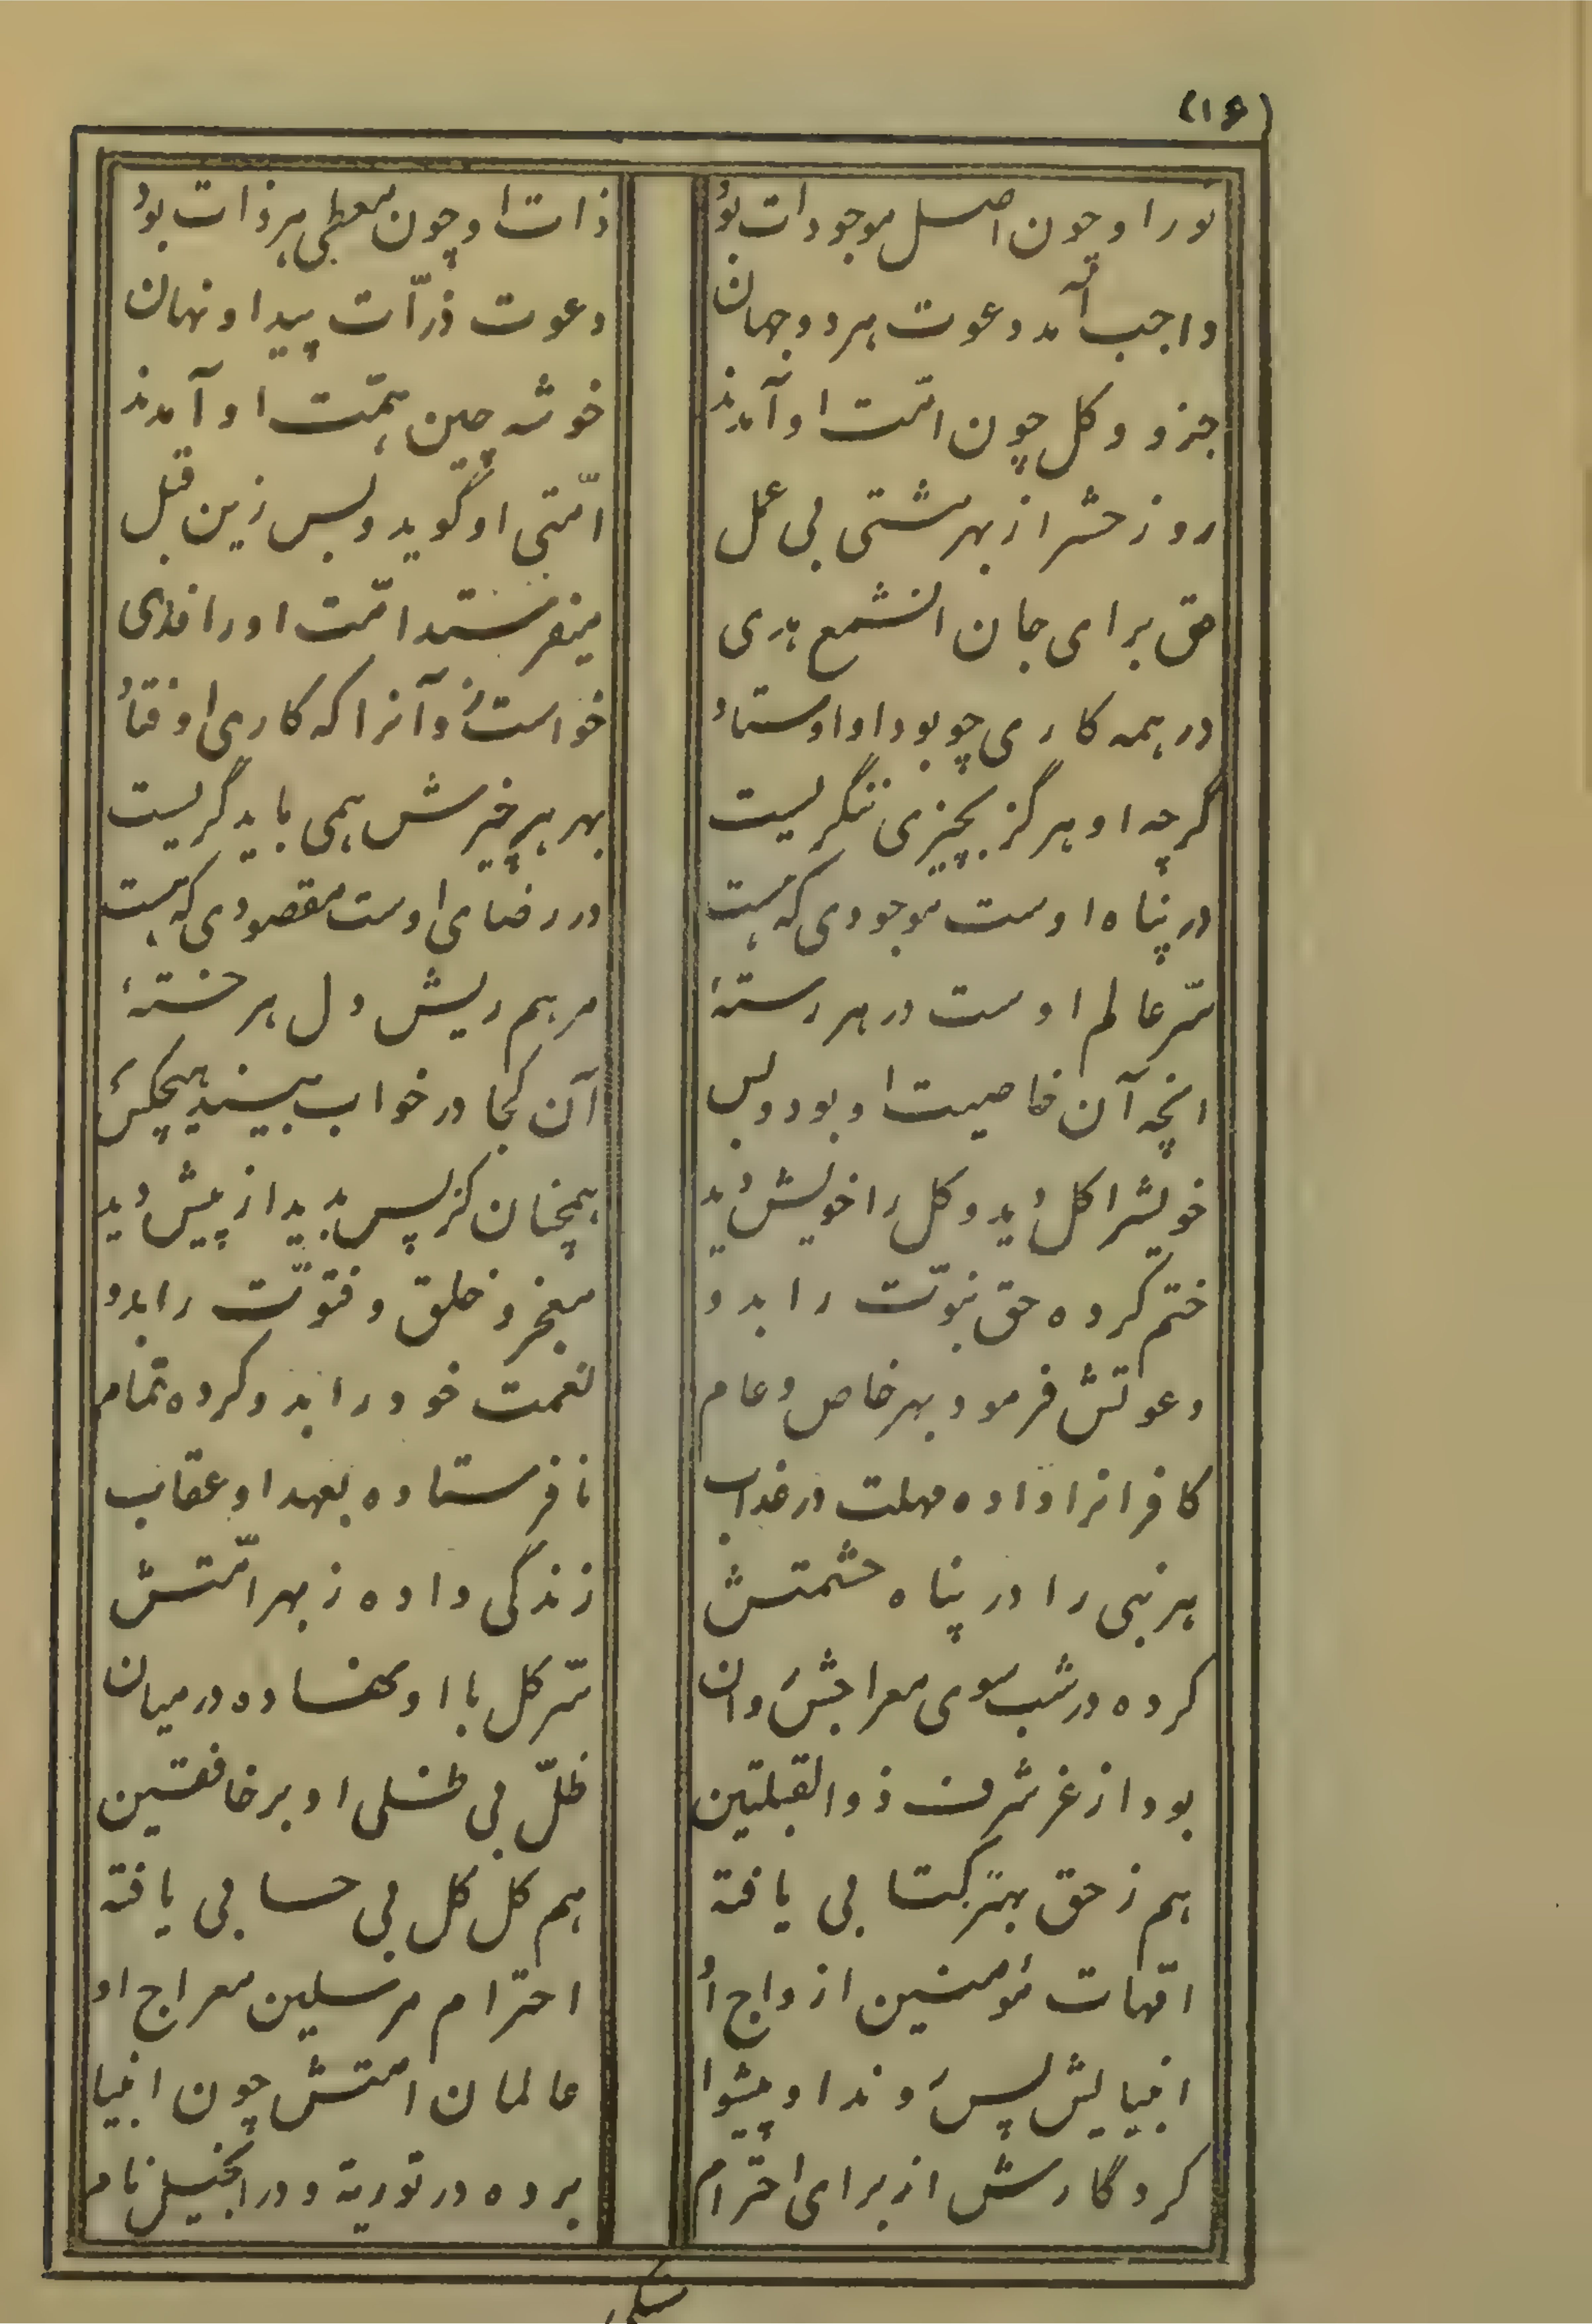 (۱۶)
نور او چون اصل موجودات بود ذات او چون معطی هر ذات بود
واجب آمد دعوت هر دو جهانش دعوت ذرّات پیدا و نهانش
جزو و کل چون امّت او آمدند خوشه چین همّت او آمدند
روز حشر از بهر مشتی بی عمل امّتی او گوید و بس زین قبل
حق برای جان آن شمع هدی میفرستد امّت او را فدی
در همه کاری چو بود او اوستاد خواست زو آنرا که کاری اوفتاد
گرچه او هرگز بچیزی ننگریست بهر هر چیزش همی باید گریست
در پناه اوست موجودی که هست در رضای اوست مقصودی که هست
سرّ عالم اوست در هر رستۀ مرهم ریش دل هر خستۀ
انچه آن خاصیت او بود و بس آن کجا در خواب بیند هیچکس
خویشرا کل دید و کل را خویش دید همچنان کز پس بدید از پیش دید
ختم کرده حق نبوّت را بدو معجز و خلق و فتوّت را بدو
دعوتش فرمود بهر خاص و عام نعمت خود را بدو کرده تمام
کافرانرا داده مهلت در عذاب نافرستاده بعهد او عقاب
هر نبی را در پناه حشمتش زندگی داده ز بهر امّتش
کرده در شب سوی معراجش روان سرّ کل با او نهاده در میان
بود از عز شرف ذوالقبلتین ظلّ بی ظلی او بر خافقین
هم ز حق بهتر کتابی یافته هم کل کل بی حسابی یافته
امّهات مؤمنین ازواج او احترام مرسلین معراج او
انبیایش پس روند او پیشوا عالمان امّتش چون انبیا
کردگارش از برای احترام برده در توریة و در انجیل نام
سنگی